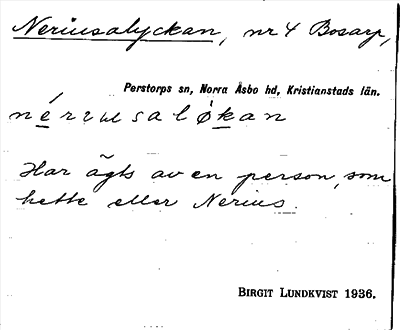 Neriusalyckan, nr 4 Bosarp,
Perstorps sn, Norra Åsbo hd, Kristianstads län.
Har ägts av en person, som
hette eller Nerius.
BIRGIT LUNDKVIST 1936.